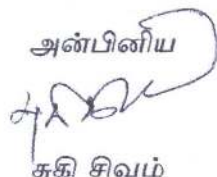 அன்பினிய
சுகி சிவம்